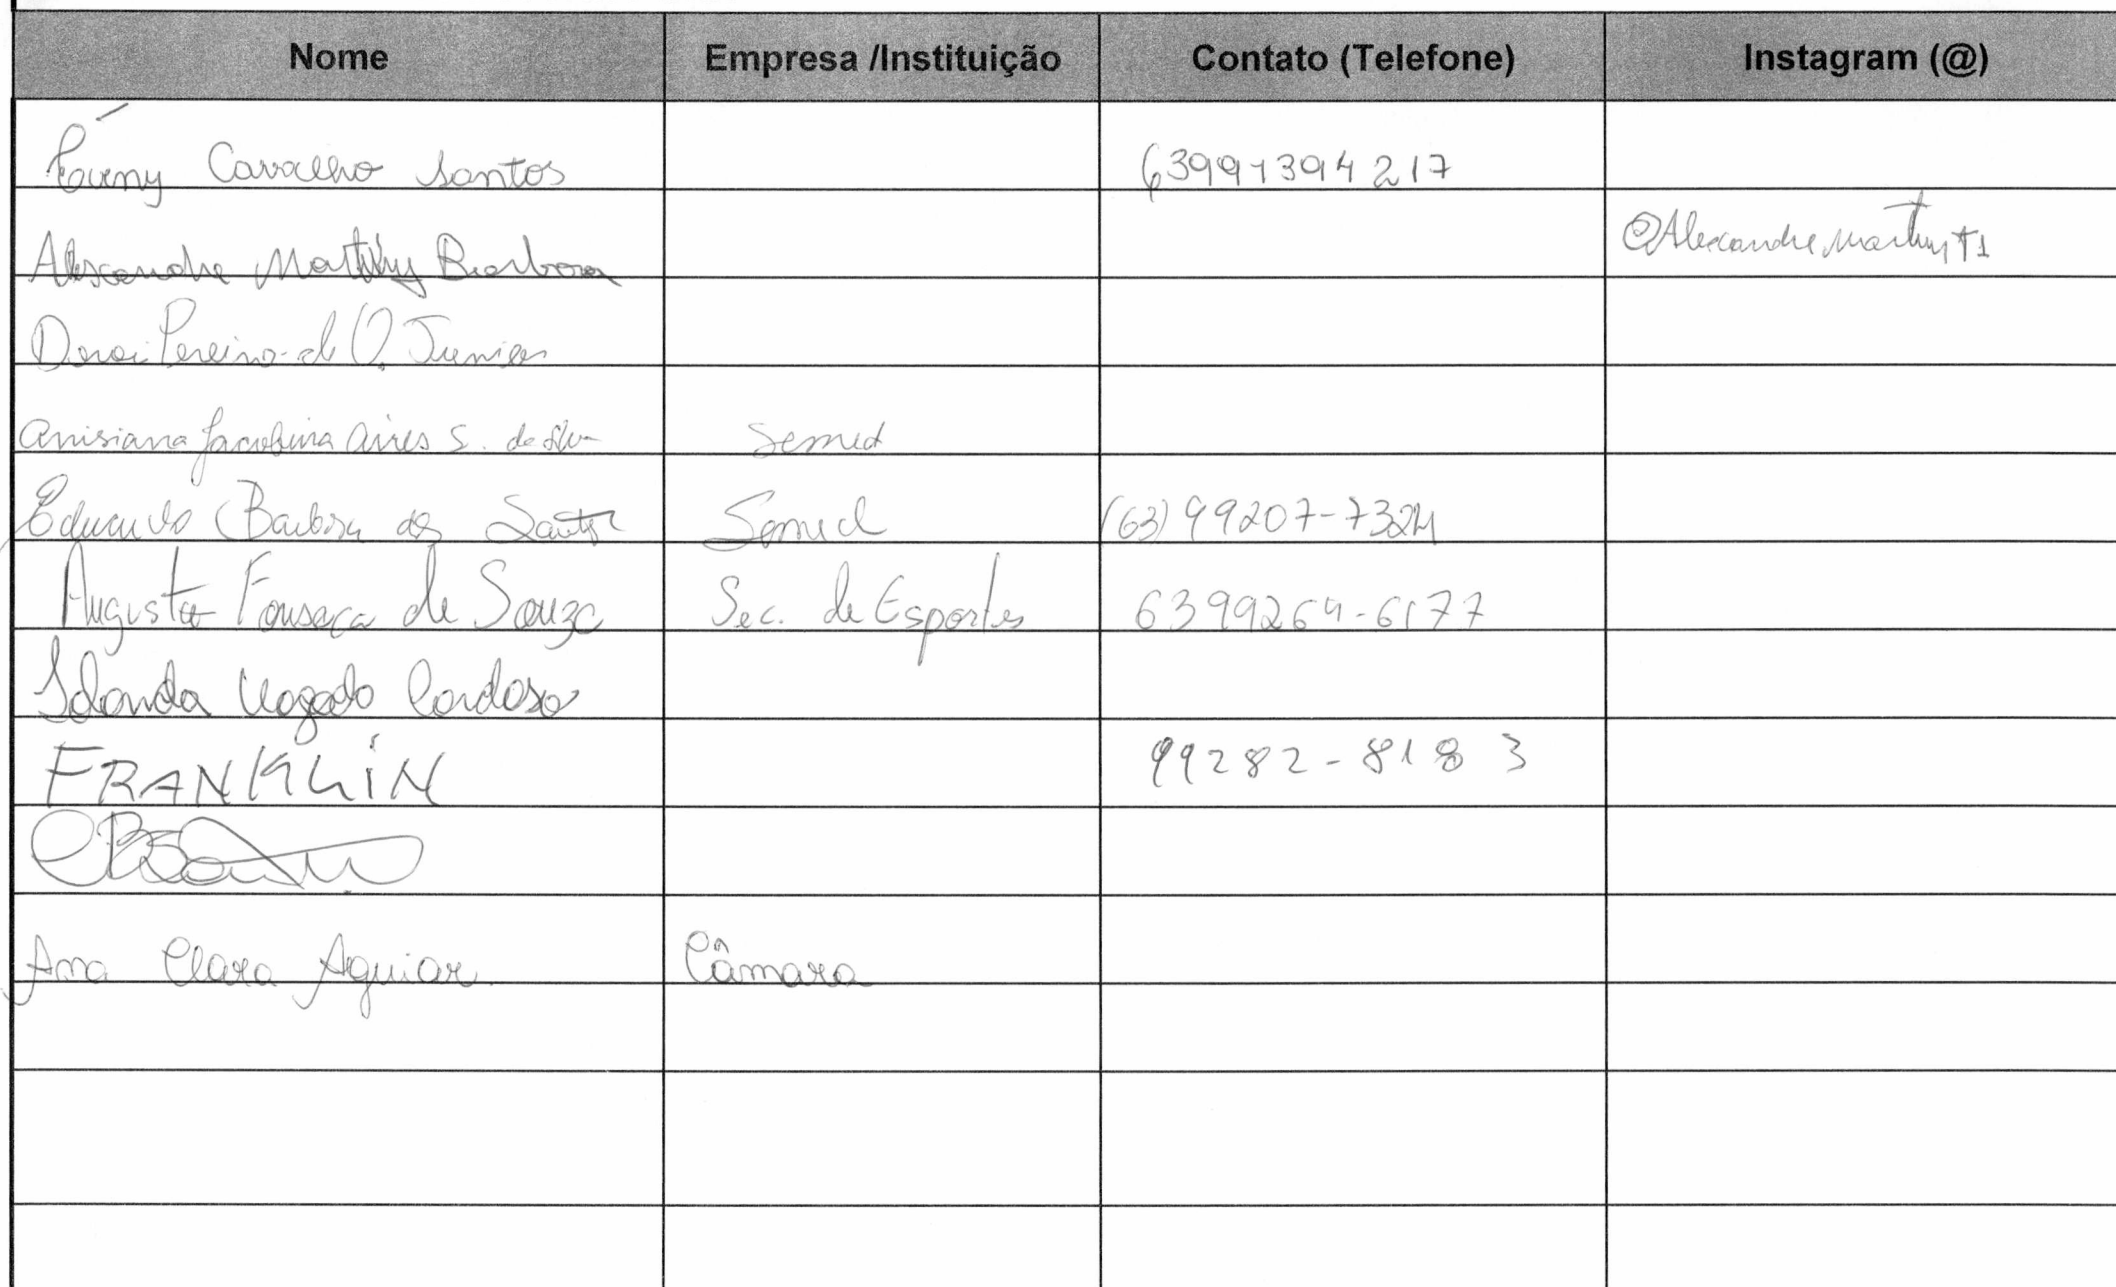 Nome Empresa /Instituição Contato (Telefone) Instagram (@)
Éveny Carvalho Santos 63991394217
Alexandre Barbosa
Pereira de O. Junior
Anisiana Jacobina Aires S. da Silva Semed
Eduardo Barbosa dos Santos Semed (63) 99207-7324
Augusto Fonseca de Souza Sec. de Esportes 6399264-6177
Cardoso
FRANKLIN 99282-8183
Ana Clara Aguiar Câmara